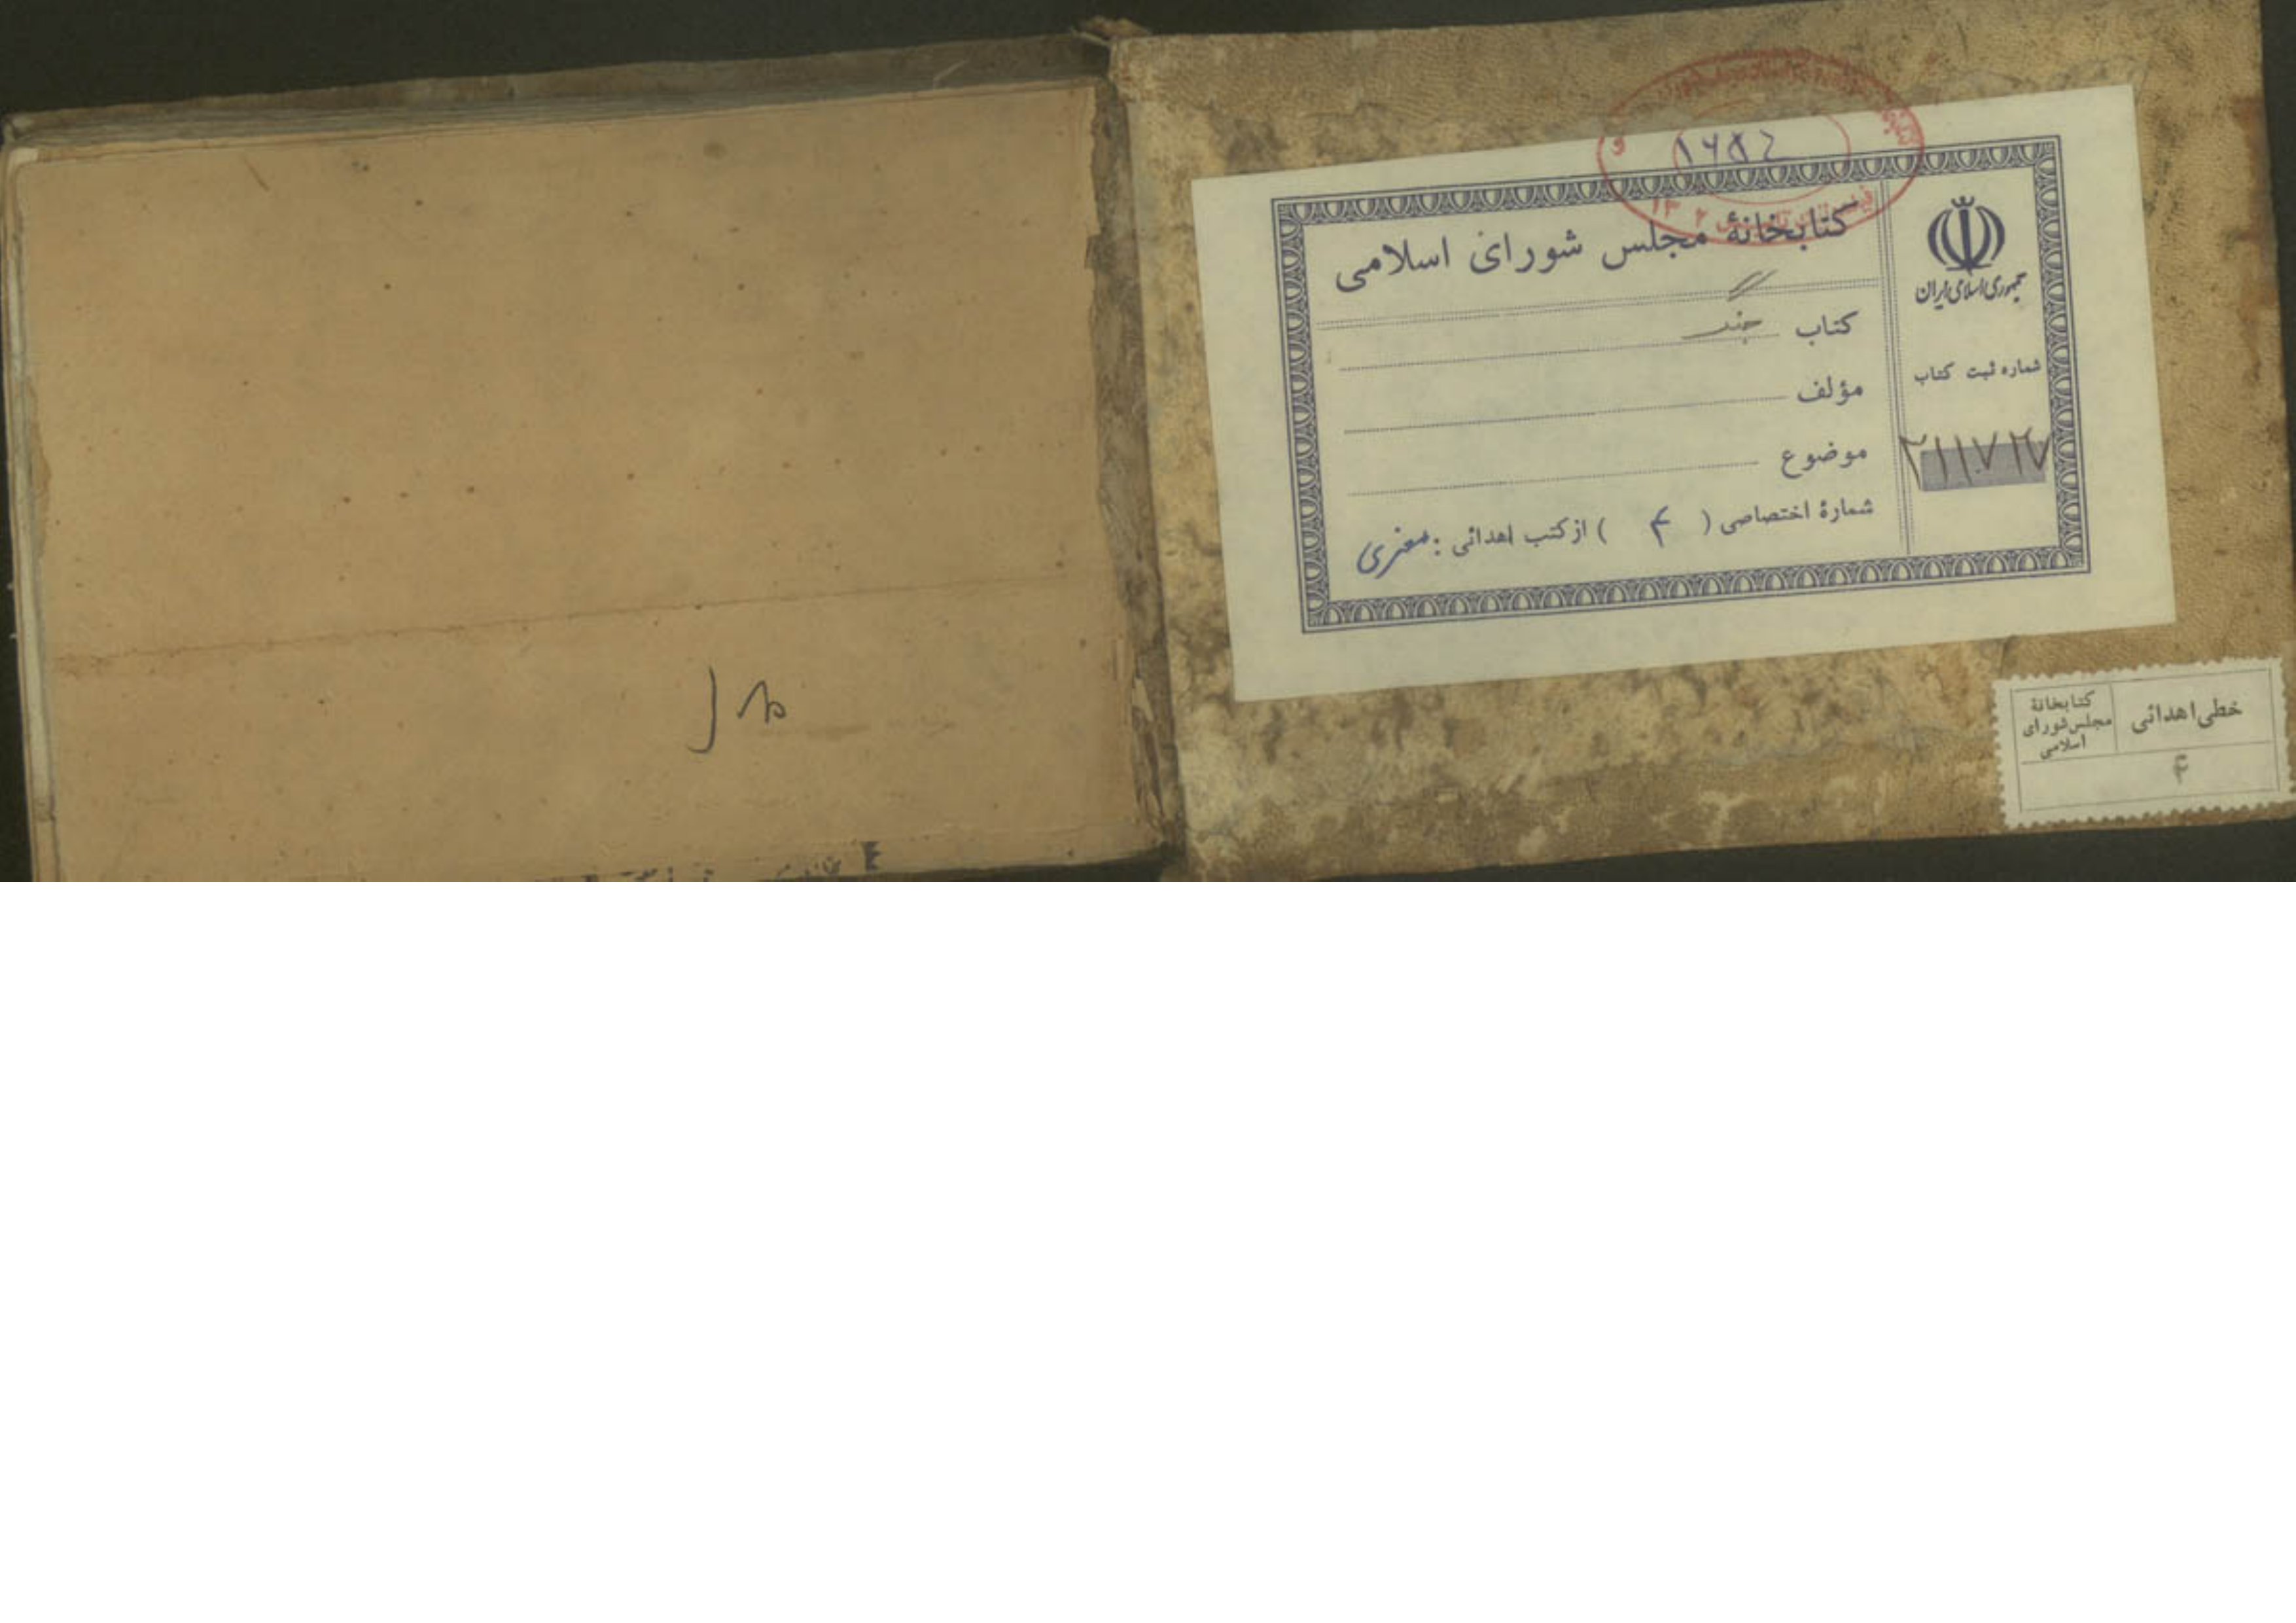 ۱۶۵۲
کتابخانهٔ مجلس شورای اسلامی
کتاب جنگ
مؤلف
موضوع
شمارهٔ اختصاصی ( ۴ ) از کتب اهدائی :
جمهوری اسلامی ایران
شماره ثبت کتاب
خطی اهدائی
کتابخانهٔ
مجلس شورای
اسلامی
۴